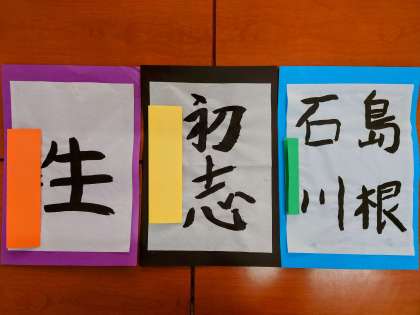 生
初志
島根
石川